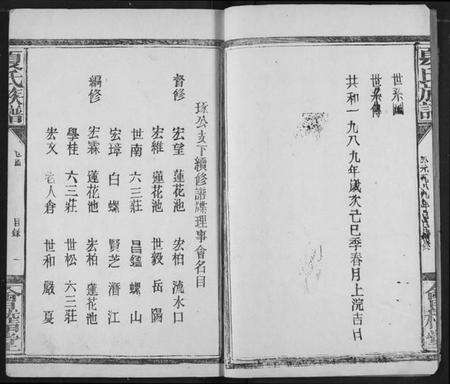 世系圖
世系傳
共和一九八九年歲次己巳季春月上浣吉日
夏氏族譜
目錄
一
琢公支下續修譜牒理事會名目
督修
宏望 蓮花池
宏柏 流水口
宏維 蓮花池
世毅 岳陽
世南 六三莊
昌鎰 螺山
宏璋 白螺
賢芝 潛江
編修
宏霖 蓮花池
宏柏 蓮花池
學桂 六三莊
世松 六三莊
宏文 人倉
世和 嚴夏